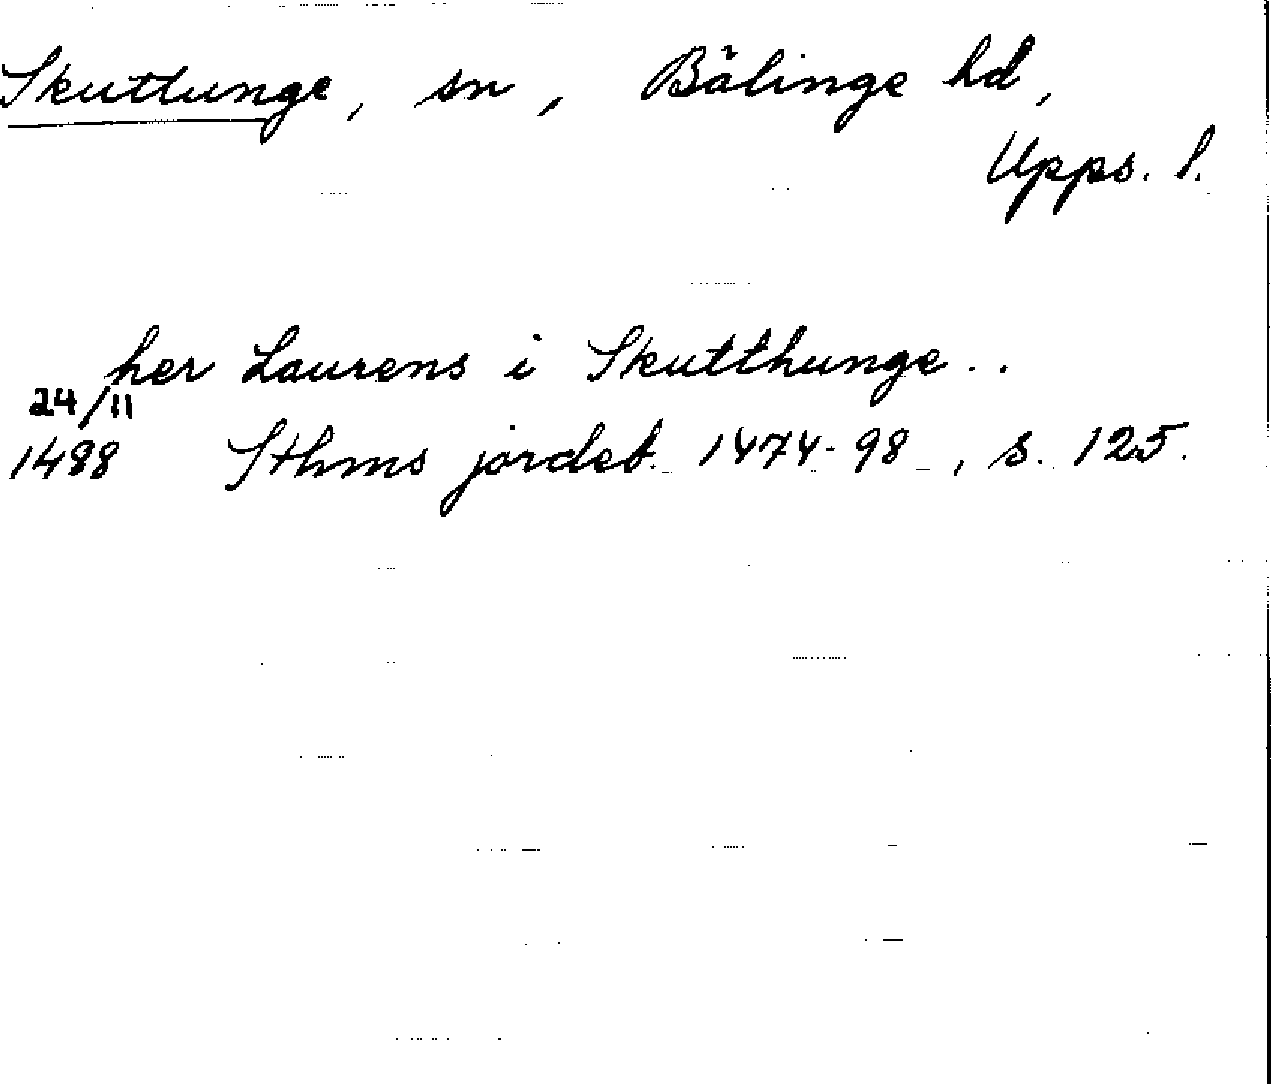 Skuttunge, sn, Bälinge hd,
Upps. l.
her Laurens i Skutthunge..
24/11
1488 Sthms jordeb. 1474-98, s. 125.